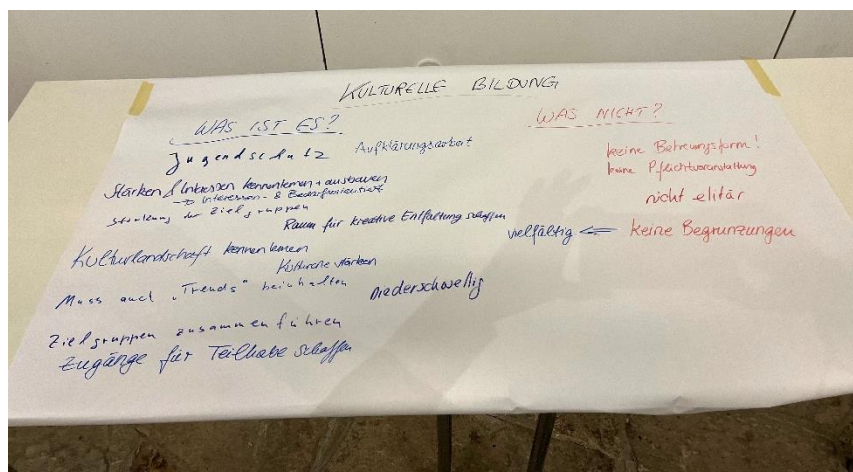 KULTURELLE BILDUNG
WAS IST ES?
Jugendschutz
Aufklärungsarbeit
Stärken & Interessen kennenlernen + ausbauen
→ Interessen- & Bedarfsorientiert
Stärkung der Zielgruppen
Raum für kreative Entfaltung schaffen
Kulturlandschaft kennenlernen
stärken
Muss auch „Trends“ beinhalten
niederschwellig
Zielgruppen zusammenführen
Zugänge für Teilhabe schaffen
WAS NICHT?
keine Betreuungsform!
keine Pflichtveranstaltung
nicht elitär
vielfältig ⇐ keine Begrenzungen